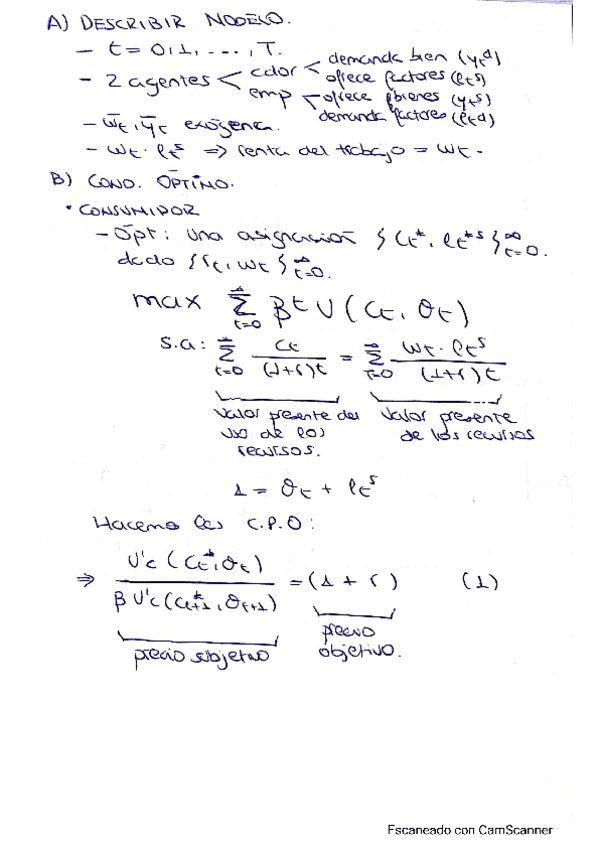 A) DESCRIBIR MODELO.
- t = 0,1, ..., T.
- 2 agentes < cdor < demanda bien (yt^d)
ofrece factores (lt^s)
emp < ofrece bienes (yt^s)
demanda factores (lt^d)
- w̄t, ȳt exógena.
- wt · lt^s ⇒ renta del trabajo = wt.
B) COND. ÓPTIMO.
• CONSUMIDOR
- Ópt: una asignación {Ct*, lt*^s}∞ t=0.
dado {rt, wt}∞ t=0.
max ∑∞ t=0 β^t U(Ct, θt)
s.a: ∑∞ t=0 Ct / (1+r)^t = ∑∞ t=0 wt · lt^s / (1+r)^t
Valor presente del uso de los recursos.
Valor presente de los recursos
1 = θt + lt^s
Hacemos las C.P.O:
⇒ U'c (Ct*, θt) / β U'c (Ct+1*, θt+1) = (1 + r) (1)
precio subjetivo
precio objetivo.
Escaneado con CamScanner